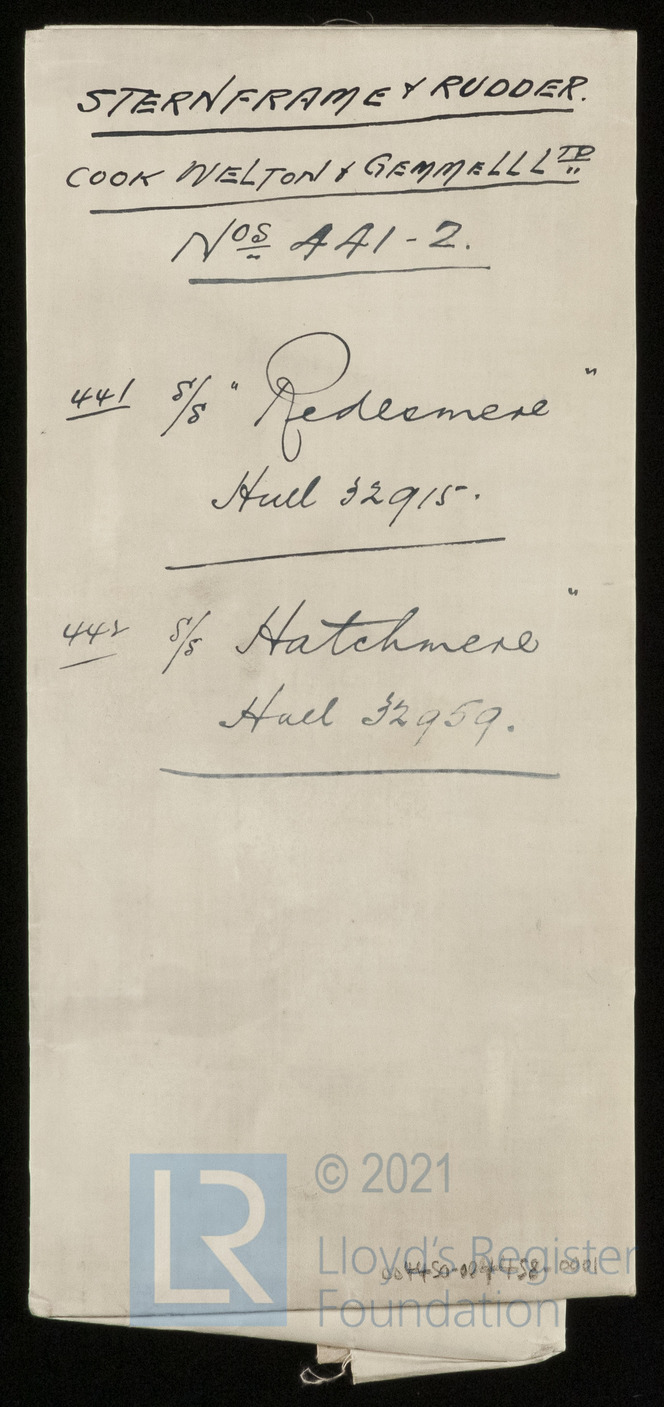 STERNFRAME & RUDDER.
COOK WELTON & GEMMELL LTD
Nos 441-2.
441 S/S "Redesmere"
Hull 32915.
442 S/S Hatchmere"
Hull 32959.
LR
© 2021
Lloyd's Register
Foundation